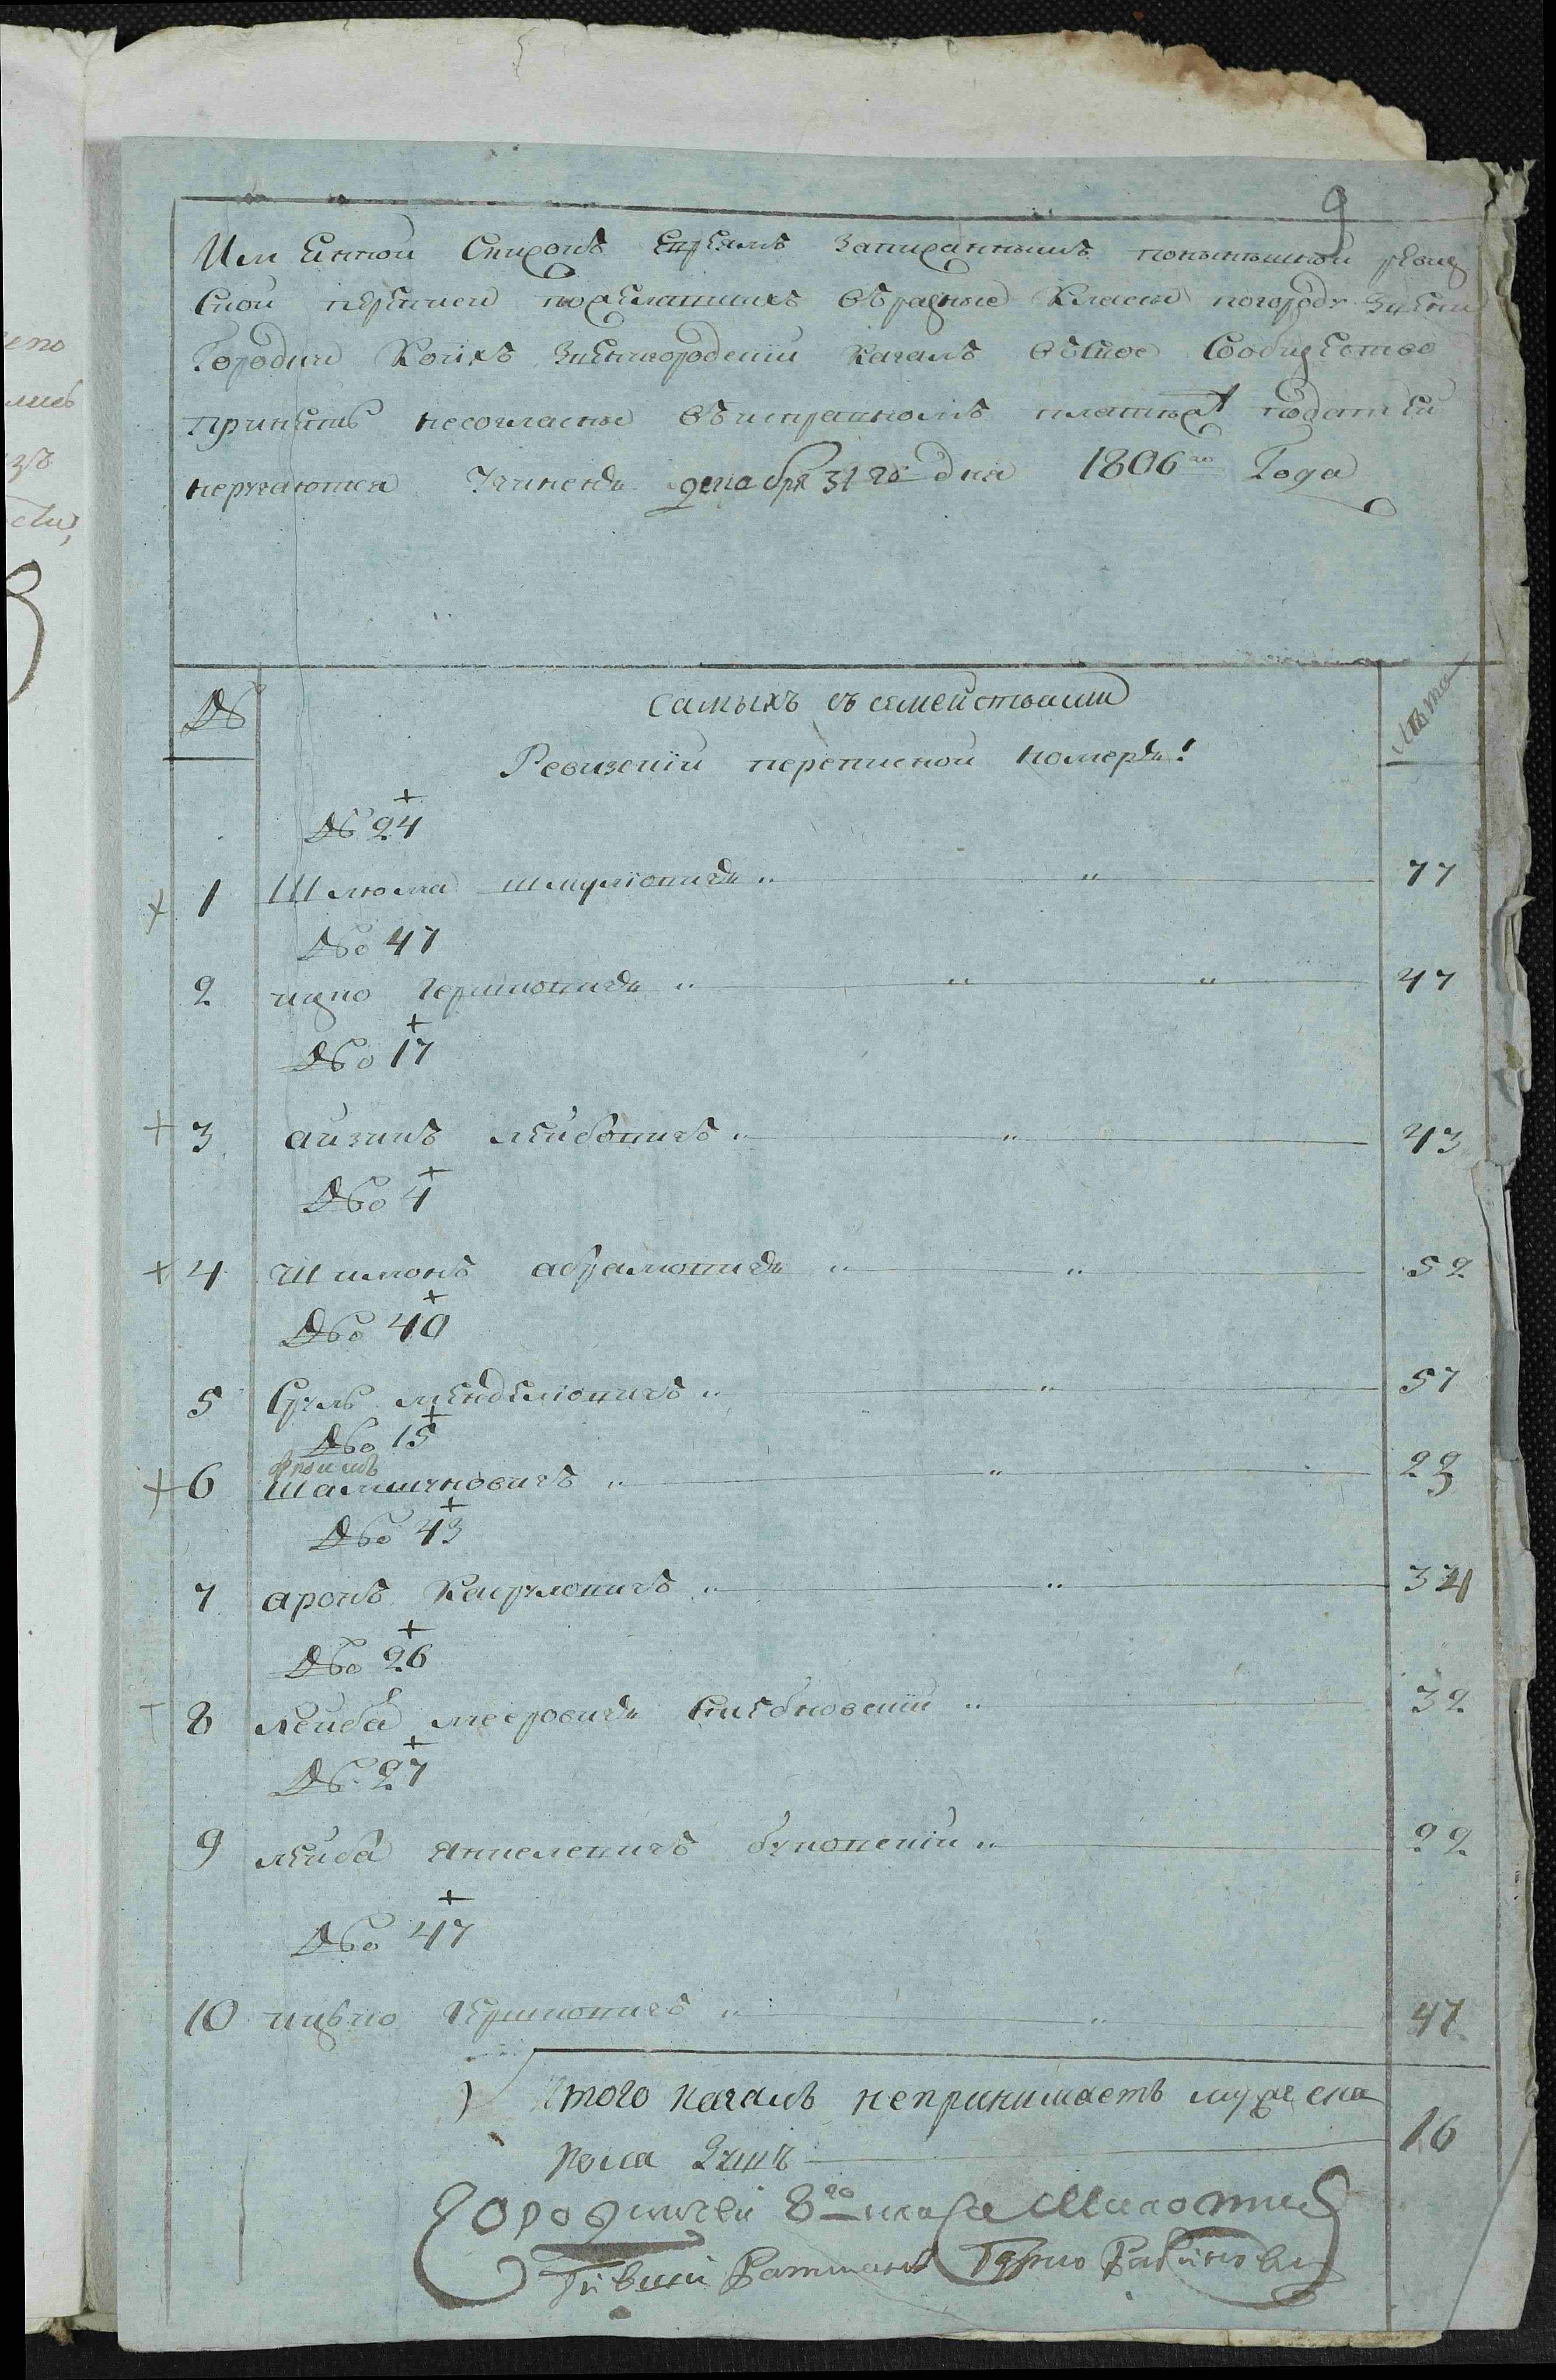 9
Именной Списокъ Евреямъ Записаннымъ понынѣшней ревиз
ской пожелавшихъ въразные Класы погороду Звени
Городки Коихъ Звенигородский Кагалъ въсвое Сообщество
принять несогласны въисправномъ платежѣ податей
неручаются Учиненъ декабря 31 го дня 1806го Года
№
самыхъ съ семействами
Лѣта
Ревизский переписной номеръ!
№ 24
1 Шлюма Шмулiовичъ 77
№о 47
2 Гершковичъ 47
№о 17
3 айзикъ лейбовичъ 43
№о 4
4 Шимонъ абрамовичъ 52
№о 40
5 Сруль менделiовичъ 57
№о 15
6 Шамшуновичъ 23
№о 43
7 аронъ 34
№о 26
8 лейба мееровичъ 32
№ 27
9 лейба янкелевичъ 22
№о 47
10 Гершковичъ 47
Итого кагалъ непринимаетъ мужеска
пола душъ 16
Городничей 8го класа
Ратманъ